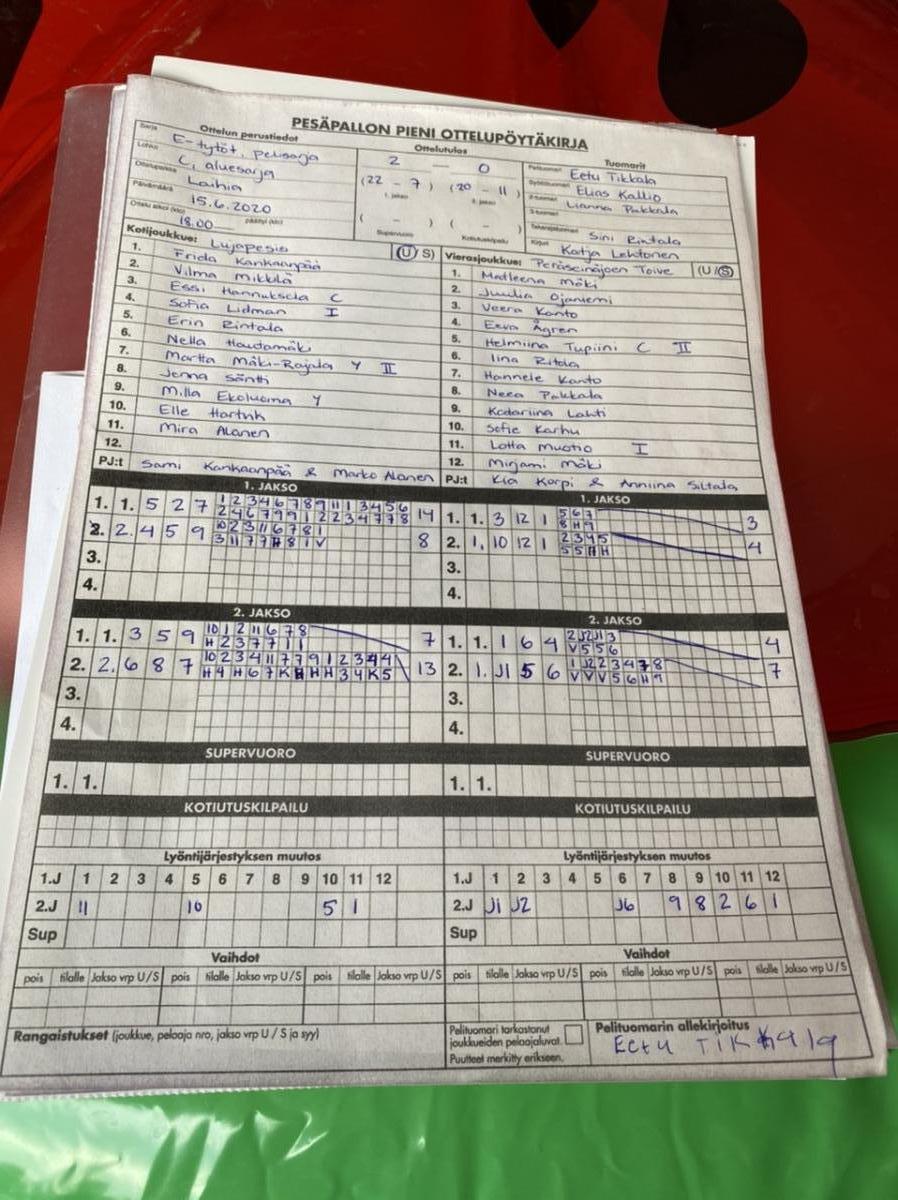 PESÄPALLON PIENI OTTELUPÖYTÄKIRJA
Ottelun perustiedot
Sarja E-tytöt, pelisarja
Lohko C, aluesarja
Ottelupaikka Laihia
Päivämäärä 15.6.2020
Ottelu alkoi (klo) 18.00 päättyi (klo)
Ottelutulos
2 — 0
(22 - 7) (20 - 11)
1. jakso 2. jakso
( - ) ( - )
Supervuoro Kotiutuskilpailu
Tuomarit
Pelituomari Eetu Tikkala
Syöttötuomari Elias Kallio
2-tuomari Lianna Pakkala
3-tuomari
Takarajatuomari Sini Rintala
Kirjuri Katja Lehtonen
Kotijoukkue: Lujapesis (U/S)
1. Frida Kankaanpää
2. Vilma Mikkilä
3. Essi Hannuksela C
4. Sofia Lidman I
5. Erin Rintala
6. Nella Hautamäki
7. Martta Mäki-Rajala Y II
8. Jenna Säntti
9. Milla Ekoluoma Y
10. Elle
11. Mira Alanen
12.
PJ:t Sami Kankaanpää & Marko Alanen
Vierasjoukkue: Peräseinäjoen Toive (U/S)
1. Matleena Mäki
2. Juulia Ojaniemi
3. Veera Kanto
4. Eeva Ågren
5. Helmiina Tupiini C II
6. Iina Ritola
7. Hannele Kanto
8. Neea Pakkala
9. Katariina Lahti
10. Sofie Karhu
11. Lotta Muotio I
12. Mirjami Mäki
PJ:t Kia Korpi & Anniina Siltala
1. JAKSO
1. 1. 5 2 7 1 2 3 4 6 7 8 9 11 1 3 4 5 6 14
2 4 6 7 9 9 1 2 2 3 4 7 7 8
2. 2. 4 5 9 10 2 3 11 6 7 8 1 8
3 11 7 7 H 8 1 V
3.
4.
1. JAKSO
1. 1. 3 12 1 5 6 7 3
8 H 9
2. 1. 10 12 1 2 3 4 5 4
5 5 H H
3.
4.
2. JAKSO
1. 1. 3 5 9 10 1 2 11 6 7 8 7
H 2 3 7 7 1 1
2. 2. 6 8 7 10 2 3 4 11 7 7 9 1 2 3 4 4 13
H 4 H 6 7 K H H H 3 4 K 5
3.
4.
2. JAKSO
1. 1. 1 6 4 2 J2 J1 3 4
V 5 5 6
2. 1. J1 5 6 1 J2 2 3 4 7 8 7
V V V 5 6 H 9
3.
4.
SUPERVUORO
1. 1.
SUPERVUORO
1. 1.
KOTIUTUSKILPAILU
KOTIUTUSKILPAILU
Lyöntijärjestyksen muutos
1.J 1 2 3 4 5 6 7 8 9 10 11 12
2.J 11 10 5 1
Sup
Lyöntijärjestyksen muutos
1.J 1 2 3 4 5 6 7 8 9 10 11 12
2.J J1 J2 J6 9 8 2 6 1
Sup
Vaihdot
pois tilalle Jakso vrp U/S pois tilalle Jakso vrp U/S pois tilalle Jakso vrp U/S
Vaihdot
pois tilalle Jakso vrp U/S pois tilalle Jakso vrp U/S pois tilalle Jakso vrp U/S
Rangaistukset (joukkue, pelaaja nro, jakso vrp U / S ja syy)
Pelituomari tarkastanut
joukkueiden pelaajaluvat.
Puutteet merkitty erikseen.
Pelituomarin allekirjoitus
Eetu Tikkala